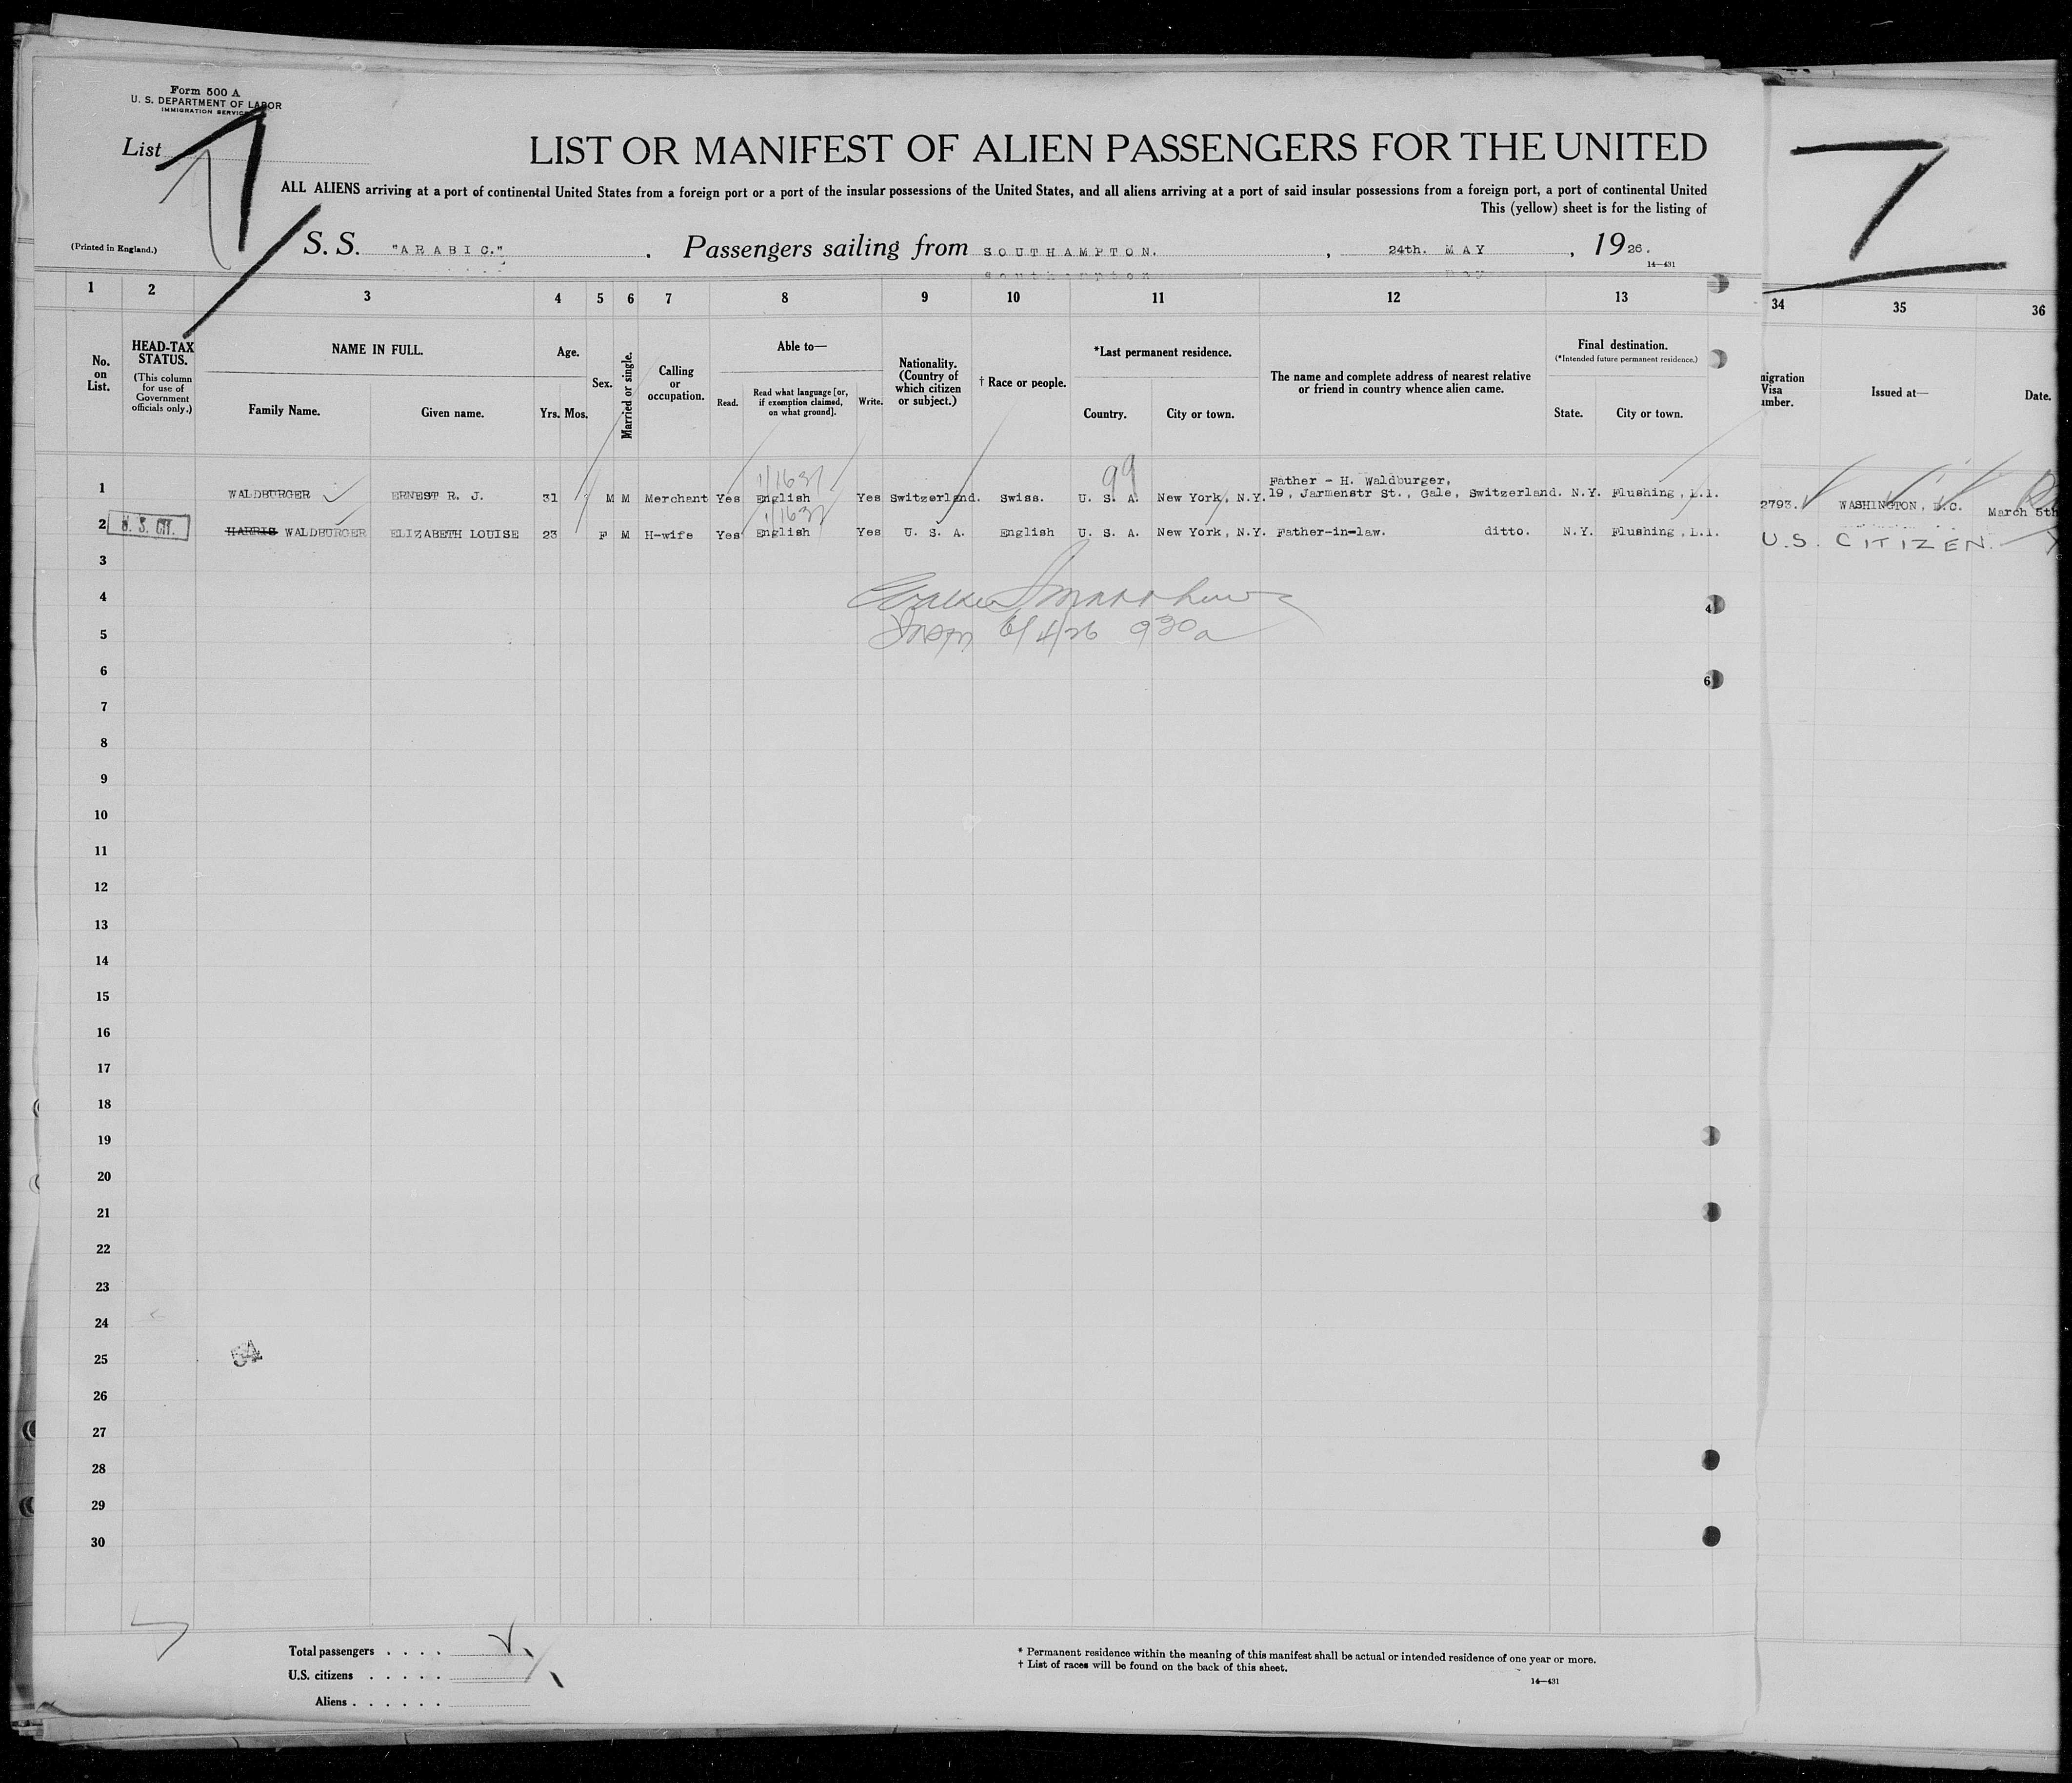 Form 500 A
U. S. DEPARTMENT OF LABOR
IMMIGRATION SERVICE
List
LIST OR MANIFEST OF ALIEN PASSENGERS FOR THE UNITED
ALL ALIENS arriving at a port of continental United States from a foreign port or a port of the insular possessions of the United States, and all aliens arriving at a port of said insular possessions from a foreign port, a port of continental United
This (yellow) sheet is for the listing of
(Printed in England.)
S. S. "ARABIC." . Passengers sailing from SOUTHAMPTON. , 24th. MAY , 1926.
14—431
1 2 3 4 5 6 7 8 9 10 11 12 13 34 35 36
No. on List.
HEAD-TAX STATUS.
(This column for use of Government officials only.)
NAME IN FULL.
Family Name. Given name.
Age.
Yrs. Mos.
Sex.
Married or single.
Calling or occupation.
Able to—
Read. Read what language [or, if exemption claimed, on what ground]. Write.
Nationality. (Country of which citizen or subject.)
† Race or people.
*Last permanent residence.
Country. City or town.
The name and complete address of nearest relative or friend in country whence alien came.
Final destination.
(*Intended future permanent residence.)
State. City or town.
Issued at—
Date.
99
Father - H. Waldburger,
1 WALDBURGER ERNEST R. J. 31 M M Merchant Yes English Yes Switzerland. Swiss. U. S. A. New York, N.Y. 19, Jarmenstr St., Gale, Switzerland. N.Y. Flushing, L.I. 2793. WASHINGTON, D.C. March 5th
2 HARRIS WALDBURGER ELIZABETH LOUISE 23 F M H-wife Yes English Yes U. S. A. English U. S. A. New York, N.Y. Father-in-law. ditto. N.Y. Flushing, L.I. U.S. CITIZEN.
3
4
5
6/4/26 930a
6
7
8
9
10
11
12
13
14
15
16
17
18
19
20
21
22
23
24
25
54
26
27
28
29
30
Total passengers . . . .
U.S. citizens . . . . .
Aliens . . . . . .
* Permanent residence within the meaning of this manifest shall be actual or intended residence of one year or more.
† List of races will be found on the back of this sheet.
14—431